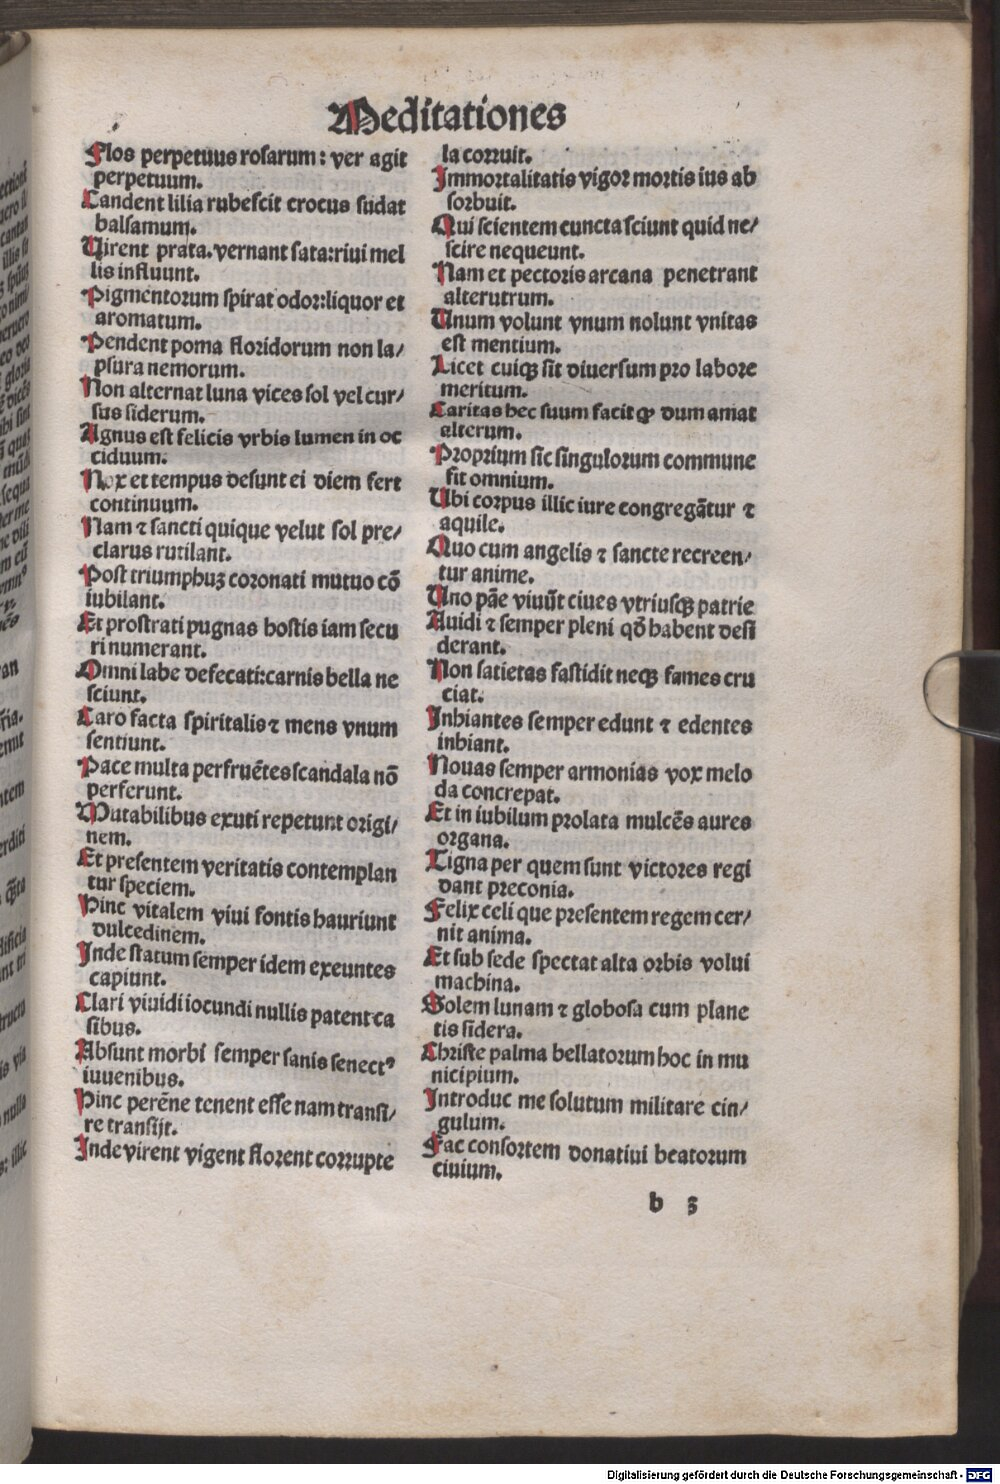 Meditationes
Flos perpetuus rosarum: ver agit
perpetuum.
Candent lilia rubescit crocus sudat
balsamum.
Virent prata. vernant sata: rivi mel
lis influunt.
Pigmentorum spirat odor: liquor et
aromatum.
Pendent poma floridorum non la/
psura nemorum.
Non alternat luna vices sol vel cur/
sus siderum.
Agnus est felicis vrbis lumen in oc
ciduum.
Nox et tempus desunt ei diem fert
continuum.
Nam ⁊ sancti quique velut sol pre/
clarus rutilant.
Post triumphuʒ coronati mutuo cō
iubilant.
Et prostrati pugnas hostis iam secu
ri numerant.
Omni labe defecati: carnis bella ne
sciunt.
Caro facta spiritalis ⁊ mens vnum
sentiunt.
Pace multa perfruētes scandala nō
perferunt.
Mutabilibus exuti repetunt origi/
nem.
Et presentem veritatis contemplan
tur speciem.
Hinc vitalem vivi fontis hauriunt
dulcedinem.
Inde statum semper idem exeuntes
capiunt.
Clari vividi iocundi nullis patent ca
sibus.
Absunt morbi semper sanis senectꝰ
iuvenibus.
Hinc perēne tenent esse nam transi/
re transijt.
Inde virent vigent florent corrupte
la corruit.
Immortalitatis vigor mortis ius ab
sorbuit.
Qui scientem cuncta sciunt quid ne/
scire nequeunt.
Nam et pectoris arcana penetrant
alterutrum.
Unum volunt vnum nolunt vnitas
est mentium.
Licet cuiqꝫ sit diversum pro labore
meritum.
Caritas hec suum facit ꝙ dum amat
alterum.
Proprium sic singulorum commune
fit omnium.
Ubi corpus illic iure congregātur ⁊
aquile.
Quo cum angelis ⁊ sancte recreen/
tur anime.
Uno pāe vivūt cives vtriusqꝫ patrie
Avidi ⁊ semper pleni qō habent desi
derant.
Non satietas fastidit neqꝫ fames cru
ciat.
Inhiantes semper edunt ⁊ edentes
inhiant.
Novas semper armonias vox melo
da concrepat.
Et in iubilum prolata mulcēs aures
organa.
Digna per quem sunt victores regi
dant preconia.
Felix celi que presentem regem cer/
nit anima.
Et sub sede spectat alta orbis volui
machina.
Solem lunam ⁊ globosa cum plane
tis sidera.
Christe palma bellatorum hoc in mu
nicipium.
Introduc me solutum militare cin/
gulum.
Fac consortem donativi beatorum
civium.
b 3
Digitalisierung gefördert durch die Deutsche Forschungsgemeinschaft - DFG